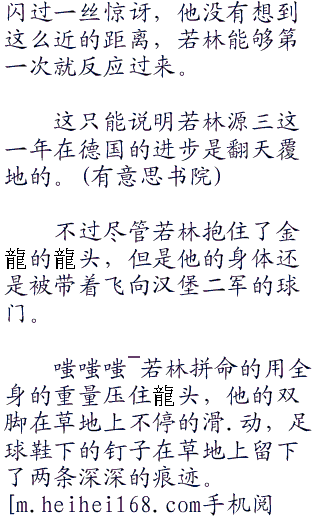 闪过一丝惊讶，他没有想到
这么近的距离，若林能够第
一次就反应过来。
这只能说明若林源三这
一年在德国的进步是翻天覆
地的。(有意思书院)
不过尽管若林抱住了金
龍的龍头，但是他的身体还
是被带着飞向汉堡二军的球
门。
嗤嗤嗤¯若林拼命的用全
身的重量压住龍头，他的双
脚在草地上不停的滑.动，足
球鞋下的钉子在草地上留下
了两条深深的痕迹。
[m.heihei168.com手机阅